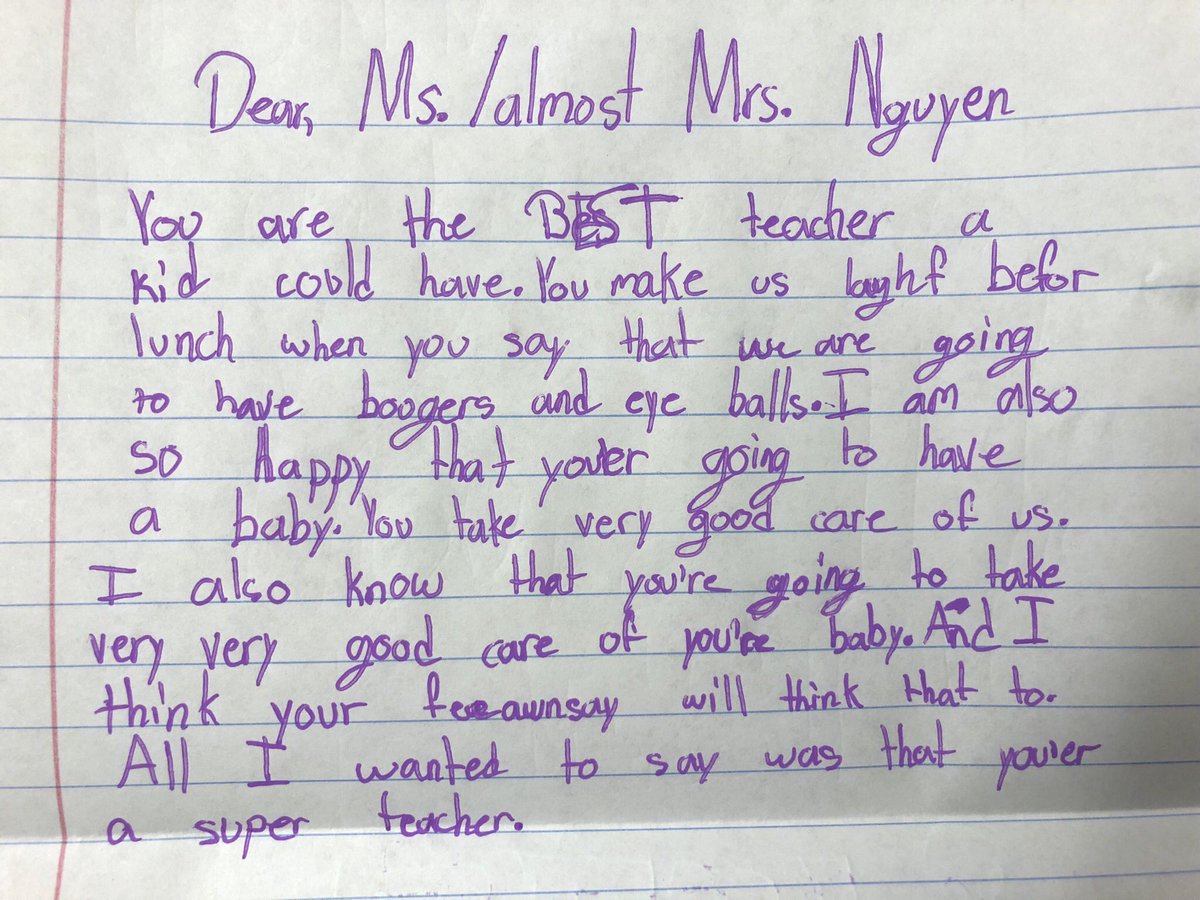 Dear, Ms. /almost Mrs. Nguyen
You are the BEST teacher a
kid could have. You make us laughf befor
lunch when you say that we are going
to have boogers and eye balls. I am also
so happy that you'er going to have
a baby. You take very good care of us.
I also know that you're going to take
very very good care of you're baby. And I
think your feeawnsay will think that to.
All I wanted to say was that you'er
a super teacher.